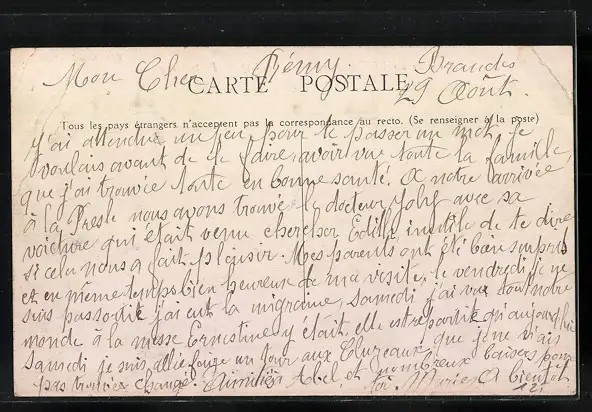 Mon Cher Rémy. Brandes
CARTE POSTALE 29 Août.
Tous les pays étrangers n'acceptent pas la correspondance au recto. (Se renseigner à la poste)
J'ai attendue un peu pour te passer un mot, je
voulais avant de le faire, avoir vue toute la famille,
que j'ai trouvée toute en bonne santé. A notre arrivée
à la Presle nous avons trouvée le docteur Joly avec sa
voiture qui était venu chercher Edith, inutile de te dire
si cela nous a fait plaisir. Mes parents ont été bien surpris
et en même temps bien heureuse de ma visite, le vendredi je ne
suis pas sortie j'ai eut la migraine, samedi j'ai vue tout notre
monde à la messe Ernestine y était, elle est repartie qu'aujourd'hui
samedi je suis allie un tour aux que je ne vais
pas trouver changé. Amitiés à Abel, et nombreux baisers pour
toi. Marie A bientôt